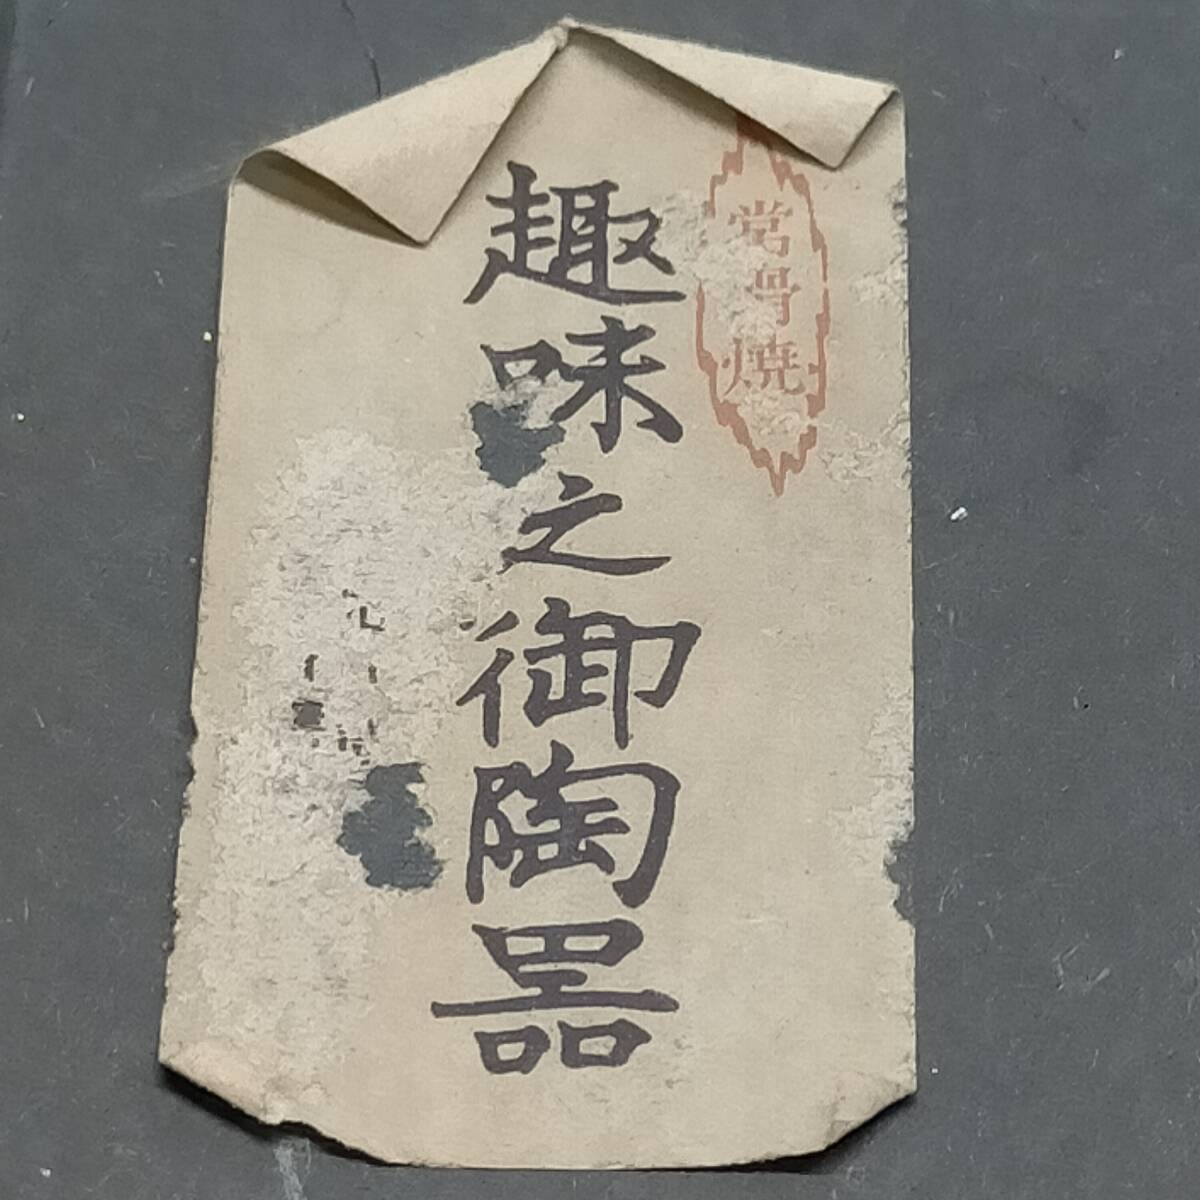 常滑焼
趣味之御陶噐